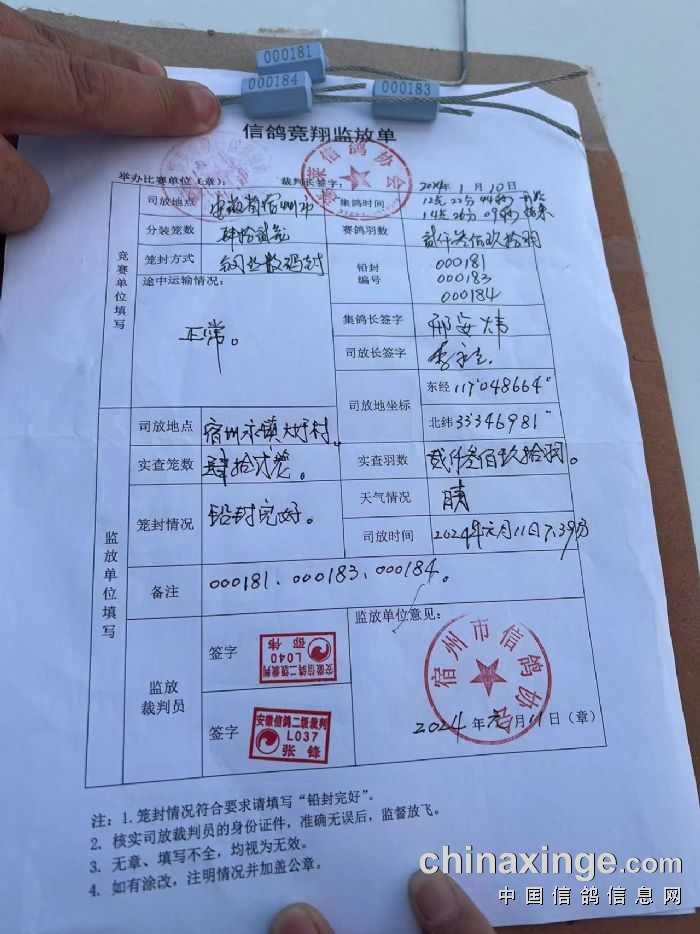 000181
000184
000183
信鸽竞翔监放单
举办比赛单位（章）： 裁判长签字： 2024年1月10日
信鸽协会
竞赛单位填写
司放地点 安徽省宿州市 集鸽时间 12点22分44秒开始
14点26分09秒结束
分装笼数 肆拾贰笼 赛鸽羽数 贰仟叁佰玖拾羽
笼封方式 钢丝数码封 铅封编号 000181
000183
000184
途中运输情况：
正常。
集鸽长签字
司放长签字
司放地坐标 东经 117°048664"
北纬 33°346981"
监放单位填写
司放地点
实查笼数 肆拾贰笼。 实查羽数 贰仟叁佰玖拾羽。
笼封情况 铅封完好。 天气情况 晴
司放时间 2024年元月11日7.39分
备注 000181、000183、000184。
监放裁判员
签字 安徽信鸽二级裁判
L040
邵伟
签字 安徽信鸽二级裁判
L037
张锋
监放单位意见：
宿州市信鸽协会
2024年元月11日（章）
注：1. 笼封情况符合要求请填写“铅封完好”。
2. 核实司放裁判员的身份证件，准确无误后，监督放飞。
3. 无章、填写不全，均视为无效。
4. 如有涂改，注明情况并加盖公章。
chinaxinge.com
中国信鸽信息网